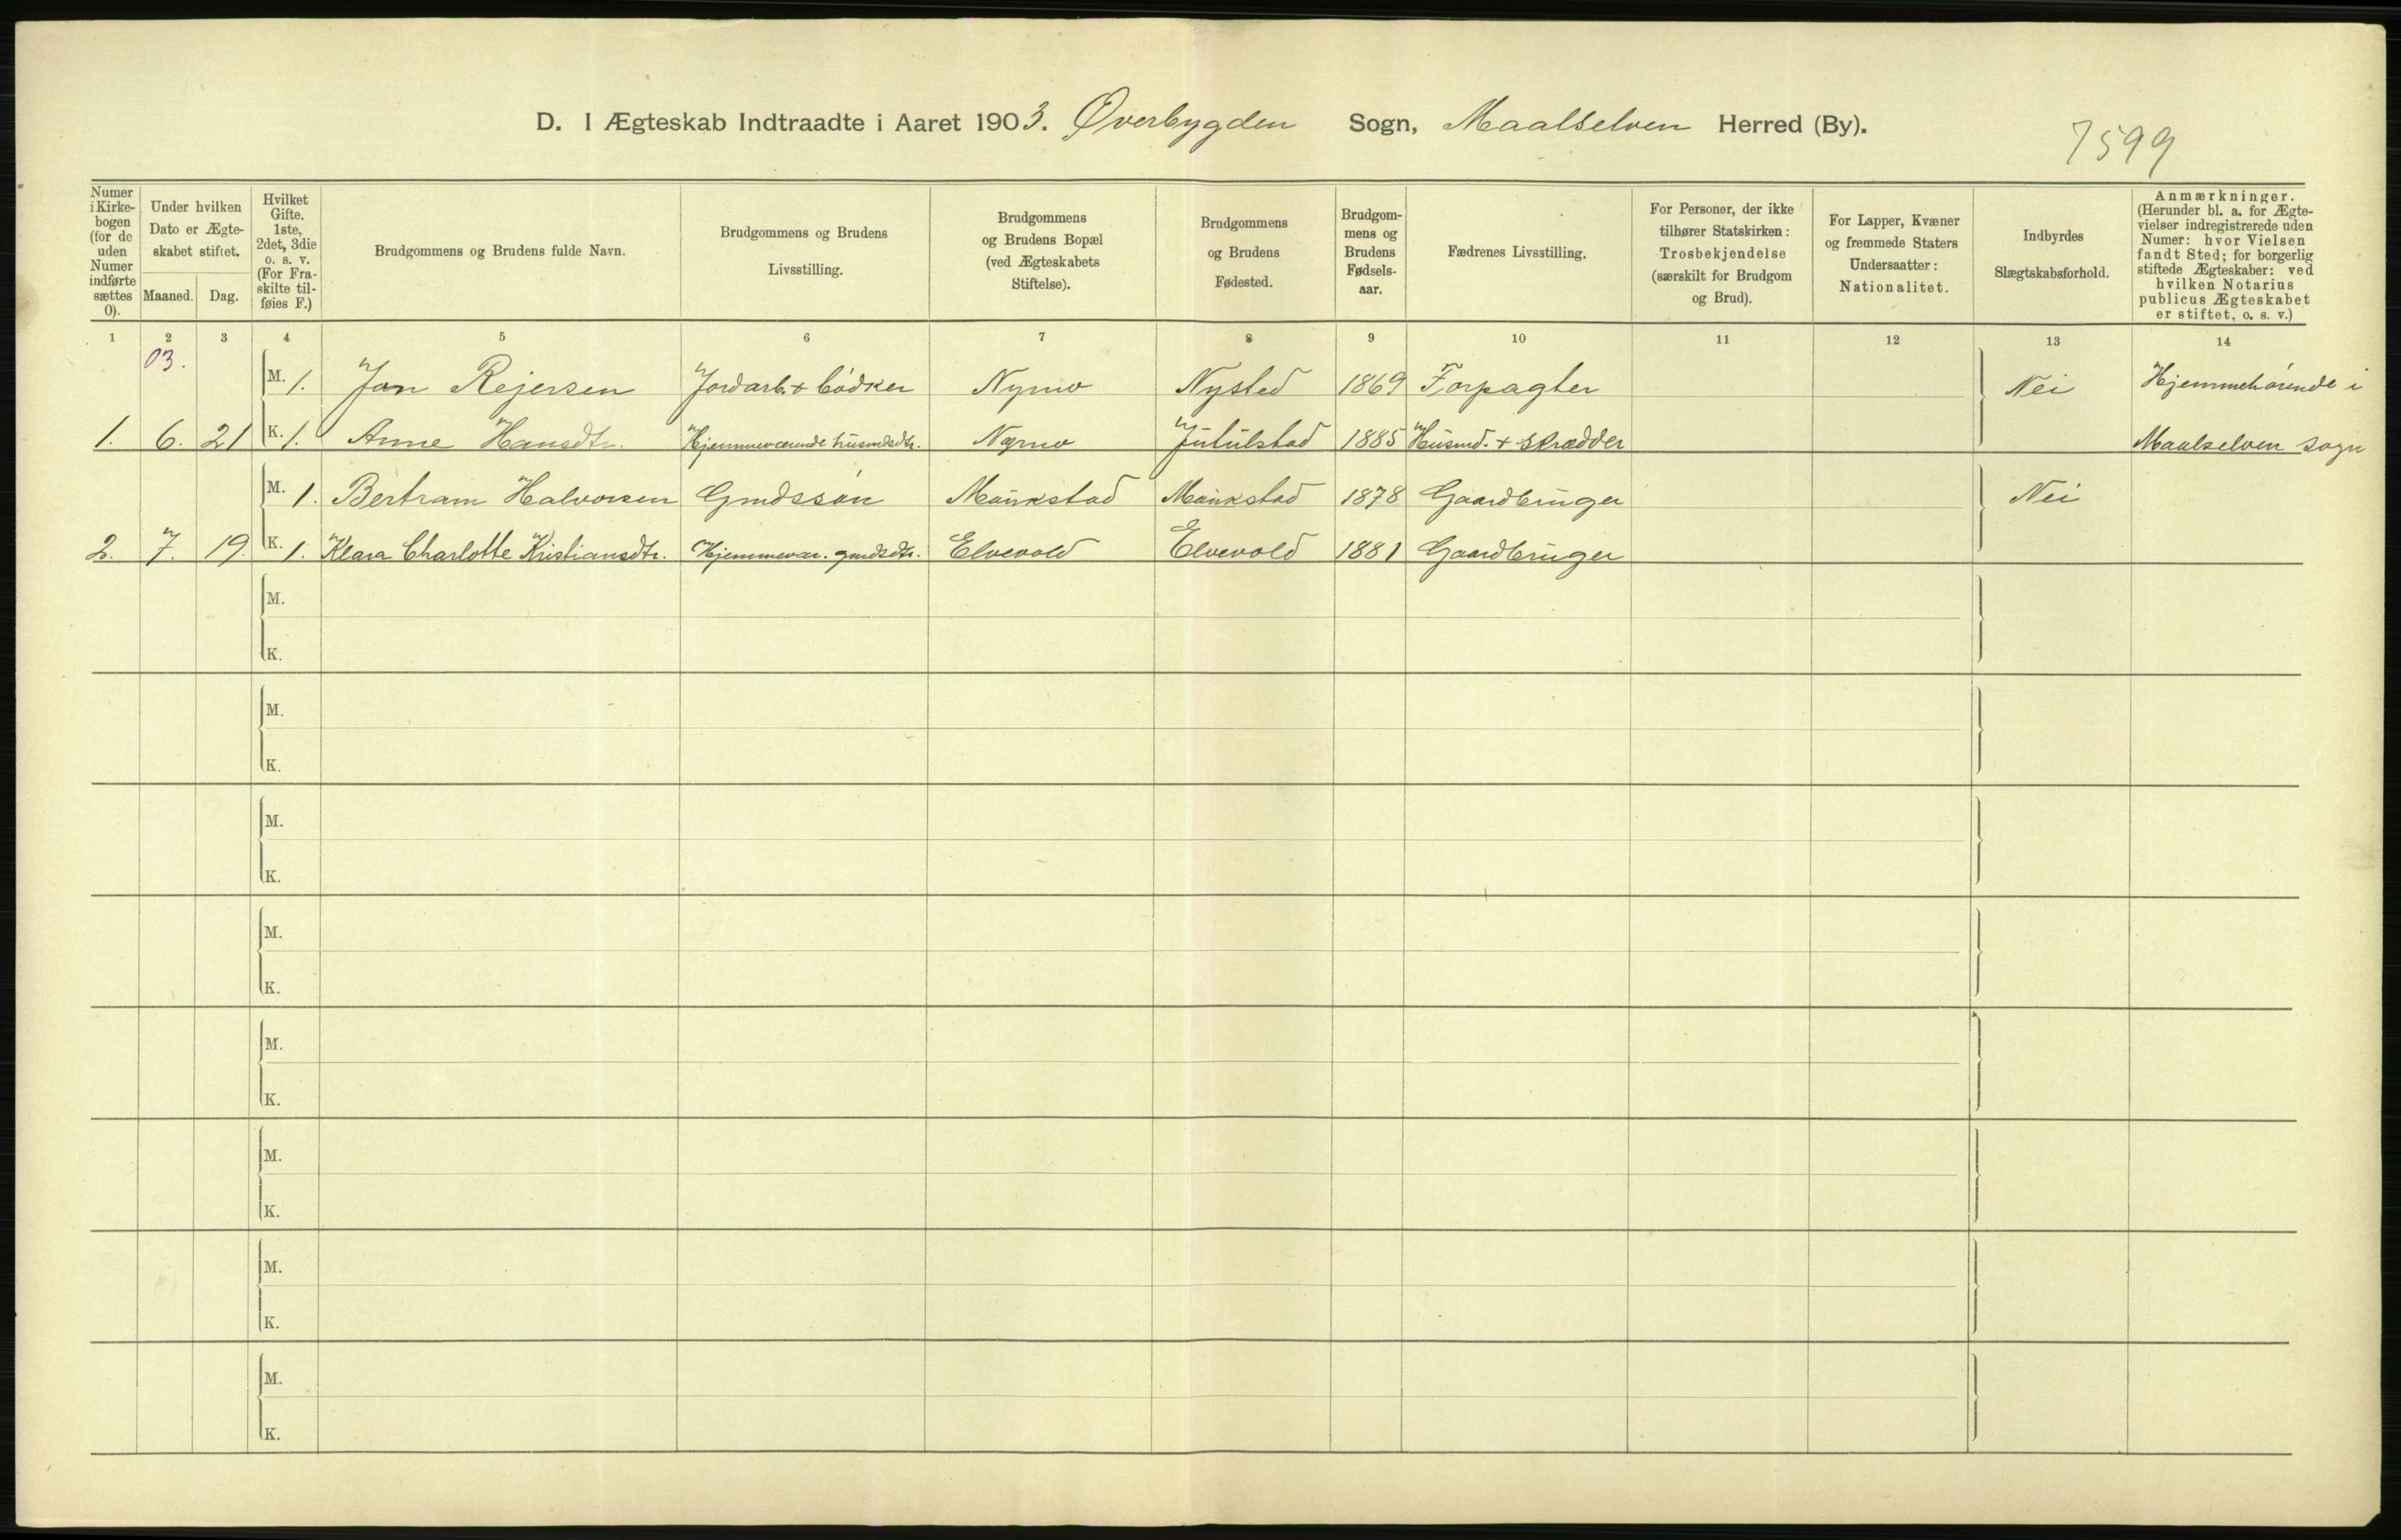 D. I Ægteskab Indtraadte i Aaret 1903. Øverbygden Sogn, Maalselven Herred (By).
7599
Numer i Kirkebogen (for de uden Numer indførte sættes 0).
Under hvilken Dato er Ægteskabet stiftet.
Maaned. Dag.
Hvilket Gifte. 1ste, 2det, 3die o. s. v. (For Fraskilte tilføies F.)
Brudgommens og Brudens fulde Navn.
Brudgommens og Brudens Livsstilling.
Brudgommens og Brudens Bopæl (ved Ægteskabets Stiftelse).
Brudgommens og Brudens Fødested.
Brudgommens og Brudens Fødselsaar.
Fædrenes Livsstilling.
For Personer, der ikke tilhører Statskirken: Trosbekjendelse (særskilt for Brudgom og Brud).
For Lapper, Kvæner og fremmede Staters Undersaatter: Nationalitet.
Indbyrdes Slægtskabsforhold.
Anmærkninger. (Herunder bl. a. for Ægtevielser indregistrerede uden Numer: hvor Vielsen fandt Sted; for borgerlig stiftede Ægteskaber: ved hvilken Notarius publicus Ægteskabet er stiftet, o. s. v.)
1 2 3 4 5 6 7 8 9 10 11 12 13 14
03.
M. 1. Jon Rejersen Jordarb. + bödker Nymo Nysted 1869 Forpagter Nei Hjemmehörende i
1. 6. 21 K. 1. Anne Hansdtr. Hjemmeværende husmdsdtr. Nymo Jutulstad 1885 Husmd. + skrædder Maalselven sogn
M. 1. Bertram Halvorsen Gmdssön Maukstad Maukstad 1878 Gaardbruger Nei
2. 7. 19. K. 1. Klara Charlotte Kristiansdtr. Hjemmevær. gmdsdtr. Elvevold Elvevold 1881 Gaardbruger
M.
K.
M.
K.
M.
K.
M.
K.
M.
K.
M.
K.
M.
K.
M.
K.